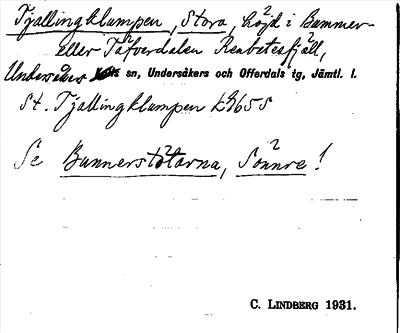 Tjallingklumpen, Stora, höjd i Bummer-
eller Tåfverdalen Renbetesfjäll,
Undersåkers sn, Undersåkers och Offerdals tg, Jämtl. l.
St. Tjallingklumpen
Se Bunnerstötarna, Sönnre!
C. LINDBERG 1931.